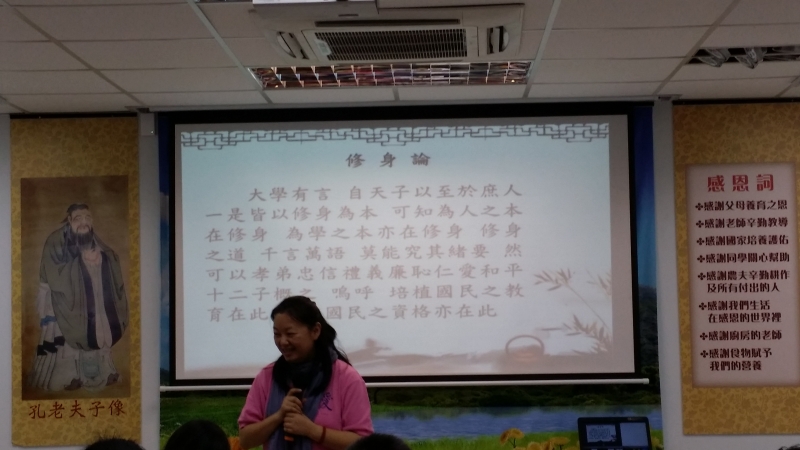 修身論
大學有言 自天子以至於庶人
一是皆以修身為本 可知為人之本
在修身 為學之本亦在修身 修身
之道 千言萬語 莫能究其緒要 然
可以孝弟忠信禮義廉恥仁愛和平
十二子概之 嗚呼 培植國民之教
育在此 國民之資格亦在此
孔老夫子像
感恩詞
✤感謝父母養育之恩
✤感謝老師辛勤教導
✤感謝國家培養護佑
✤感謝同學關心幫助
✤感謝農夫辛勤耕作
及所有付出的人
✤感謝我們生活
在感恩的世界裡
✤感謝廚房的老師
✤感謝食物賦予
我們的營養